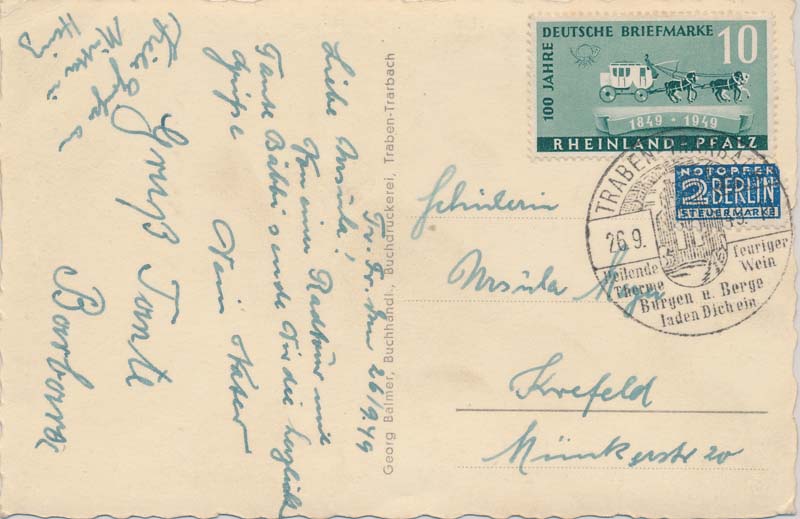 Tr. Tr. den 26/9.49
Liebe Ursula!
Von einer Radtour mit
Tante Bäbbi sende Dir die herzlichsten
Grüße
Dein Vater
Gruß Tante
Barbara
Georg Balmer, Buchhandl., Buchdruckerei, Traben-Trarbach
100 JAHRE DEUTSCHE BRIEFMARKE
10
1849 · 1949
RHEINLAND - PFALZ
NOTOPFER
2 BERLIN
STEUERMARKE
TRABEN-TRARBACH
26.9. 49
Heilende feuriger
Therme Wein
Burgen u. Berge
laden Dich ein
Schülerin
Ursula Meyer
Krefeld
Münkerstr 20